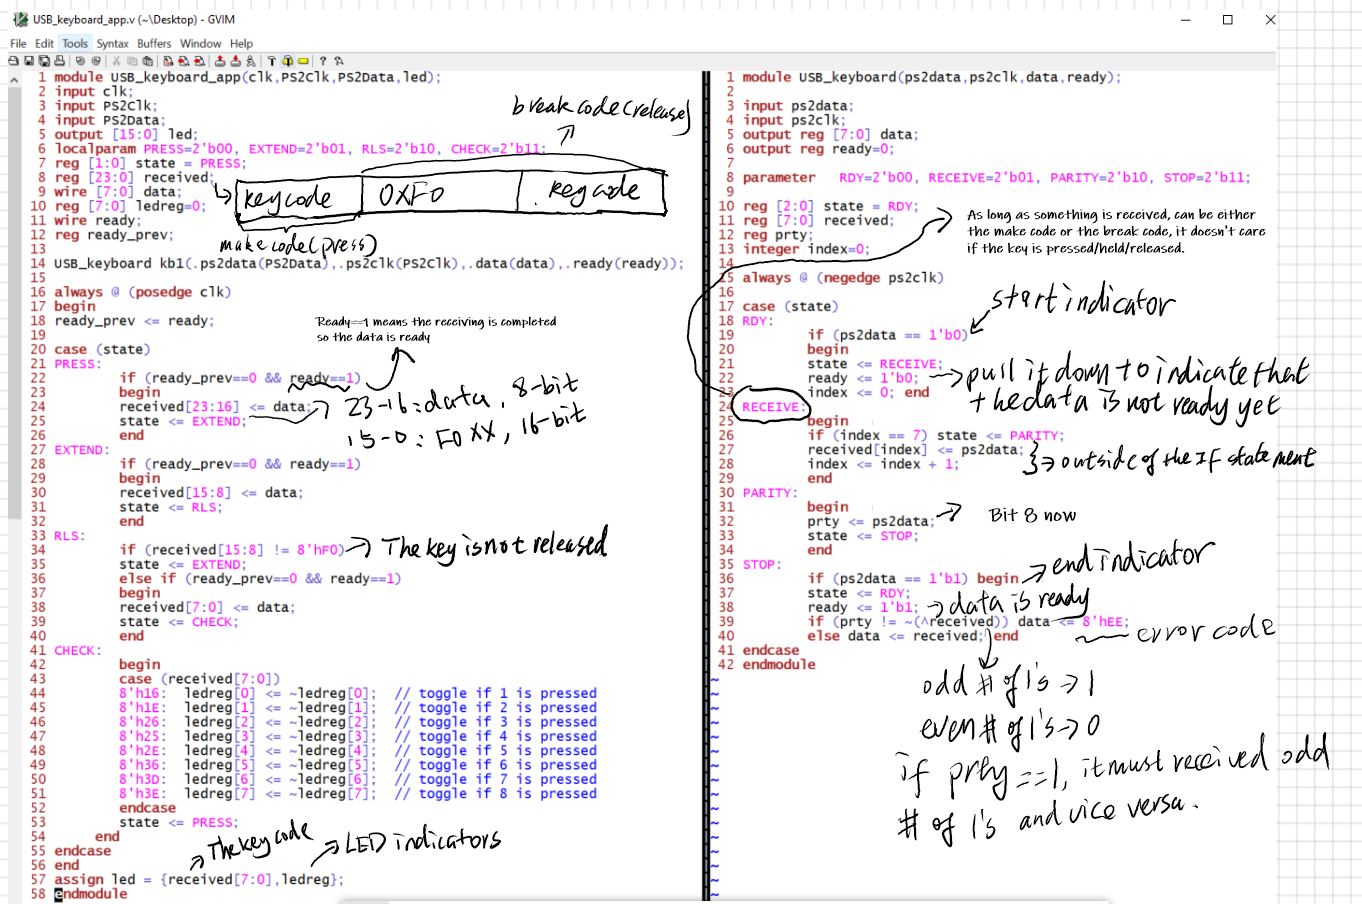 USB_keyboard_app.v (~\Desktop) - GVIM
File Edit Tools Syntax Buffers Window Help
1 module USB_keyboard_app(clk,PS2Clk,PS2Data,led);
2 input clk;
3 input PS2Clk;
4 input PS2Data;
5 output [15:0] led;
6 localparam PRESS=2'b00, EXTEND=2'b01, RLS=2'b10, CHECK=2'b11;
7 reg [1:0] state = PRESS;
8 reg [23:0] received;
9 wire [7:0] data;
10 reg [7:0] ledreg=0;
11 wire ready;
12 reg ready_prev;
13
14 USB_keyboard kb1(.ps2data(PS2Data),.ps2clk(PS2Clk),.data(data),.ready(ready));
15
16 always @ (posedge clk)
17 begin
18 ready_prev <= ready;
19
20 case (state)
21 PRESS:
22 if (ready_prev==0 && ready==1)
23 begin
24 received[23:16] <= data;
25 state <= EXTEND;
26 end
27 EXTEND:
28 if (ready_prev==0 && ready==1)
29 begin
30 received[15:8] <= data;
31 state <= RLS;
32 end
33 RLS:
34 if (received[15:8] != 8'hF0)
35 state <= EXTEND;
36 else if (ready_prev==0 && ready==1)
37 begin
38 received[7:0] <= data;
39 state <= CHECK;
40 end
41 CHECK:
42 begin
43 case (received[7:0])
44 8'h16: ledreg[0] <= ~ledreg[0]; // toggle if 1 is pressed
45 8'h1E: ledreg[1] <= ~ledreg[1]; // toggle if 2 is pressed
46 8'h26: ledreg[2] <= ~ledreg[2]; // toggle if 3 is pressed
47 8'h25: ledreg[3] <= ~ledreg[3]; // toggle if 4 is pressed
48 8'h2E: ledreg[4] <= ~ledreg[4]; // toggle if 5 is pressed
49 8'h36: ledreg[5] <= ~ledreg[5]; // toggle if 6 is pressed
50 8'h3D: ledreg[6] <= ~ledreg[6]; // toggle if 7 is pressed
51 8'h3E: ledreg[7] <= ~ledreg[7]; // toggle if 8 is pressed
52 endcase
53 state <= PRESS;
54 end
55 endcase
56 end
57 assign led = {received[7:0],ledreg};
58 endmodule
break code(release)
keycode 0XF0 keycode
make code(press)
Ready==1 means the receiving is completed
so the data is ready
23-16: data, 8-bit
15-0: F0XX, 16-bit
The key is not released
The key code
LED indicators
1 module USB_keyboard(ps2data,ps2clk,data,ready);
2
3 input ps2data;
4 input ps2clk;
5 output reg [7:0] data;
6 output reg ready=0;
7
8 parameter RDY=2'b00, RECEIVE=2'b01, PARITY=2'b10, STOP=2'b11;
9
10 reg [2:0] state = RDY;
11 reg [7:0] received;
12 reg prty;
13 integer index=0;
14
15 always @ (negedge ps2clk)
16
17 case (state)
18 RDY:
19 if (ps2data == 1'b0)
20 begin
21 state <= RECEIVE;
22 ready <= 1'b0;
23 index <= 0; end
24 RECEIVE:
25 begin
26 if (index == 7) state <= PARITY;
27 received[index] <= ps2data;
28 index <= index + 1;
29 end
30 PARITY:
31 begin
32 prty <= ps2data;
33 state <= STOP;
34 end
35 STOP:
36 if (ps2data == 1'b1) begin
37 state <= RDY;
38 ready <= 1'b1;
39 if (prty != ~(^received)) data <= 8'hEE;
40 else data <= received; end
41 endcase
42 endmodule
As long as something is received, can be either
the make code or the break code, it doesn't care
if the key is pressed/held/released.
start indicator
pull it down to indicate that
the data is not ready yet
outside of the If statement
Bit 8 now
end indicator
data is ready
error code
odd # of 1's → 1
even # of 1's → 0
if prty == 1, it must received odd
# of 1's and vice versa.